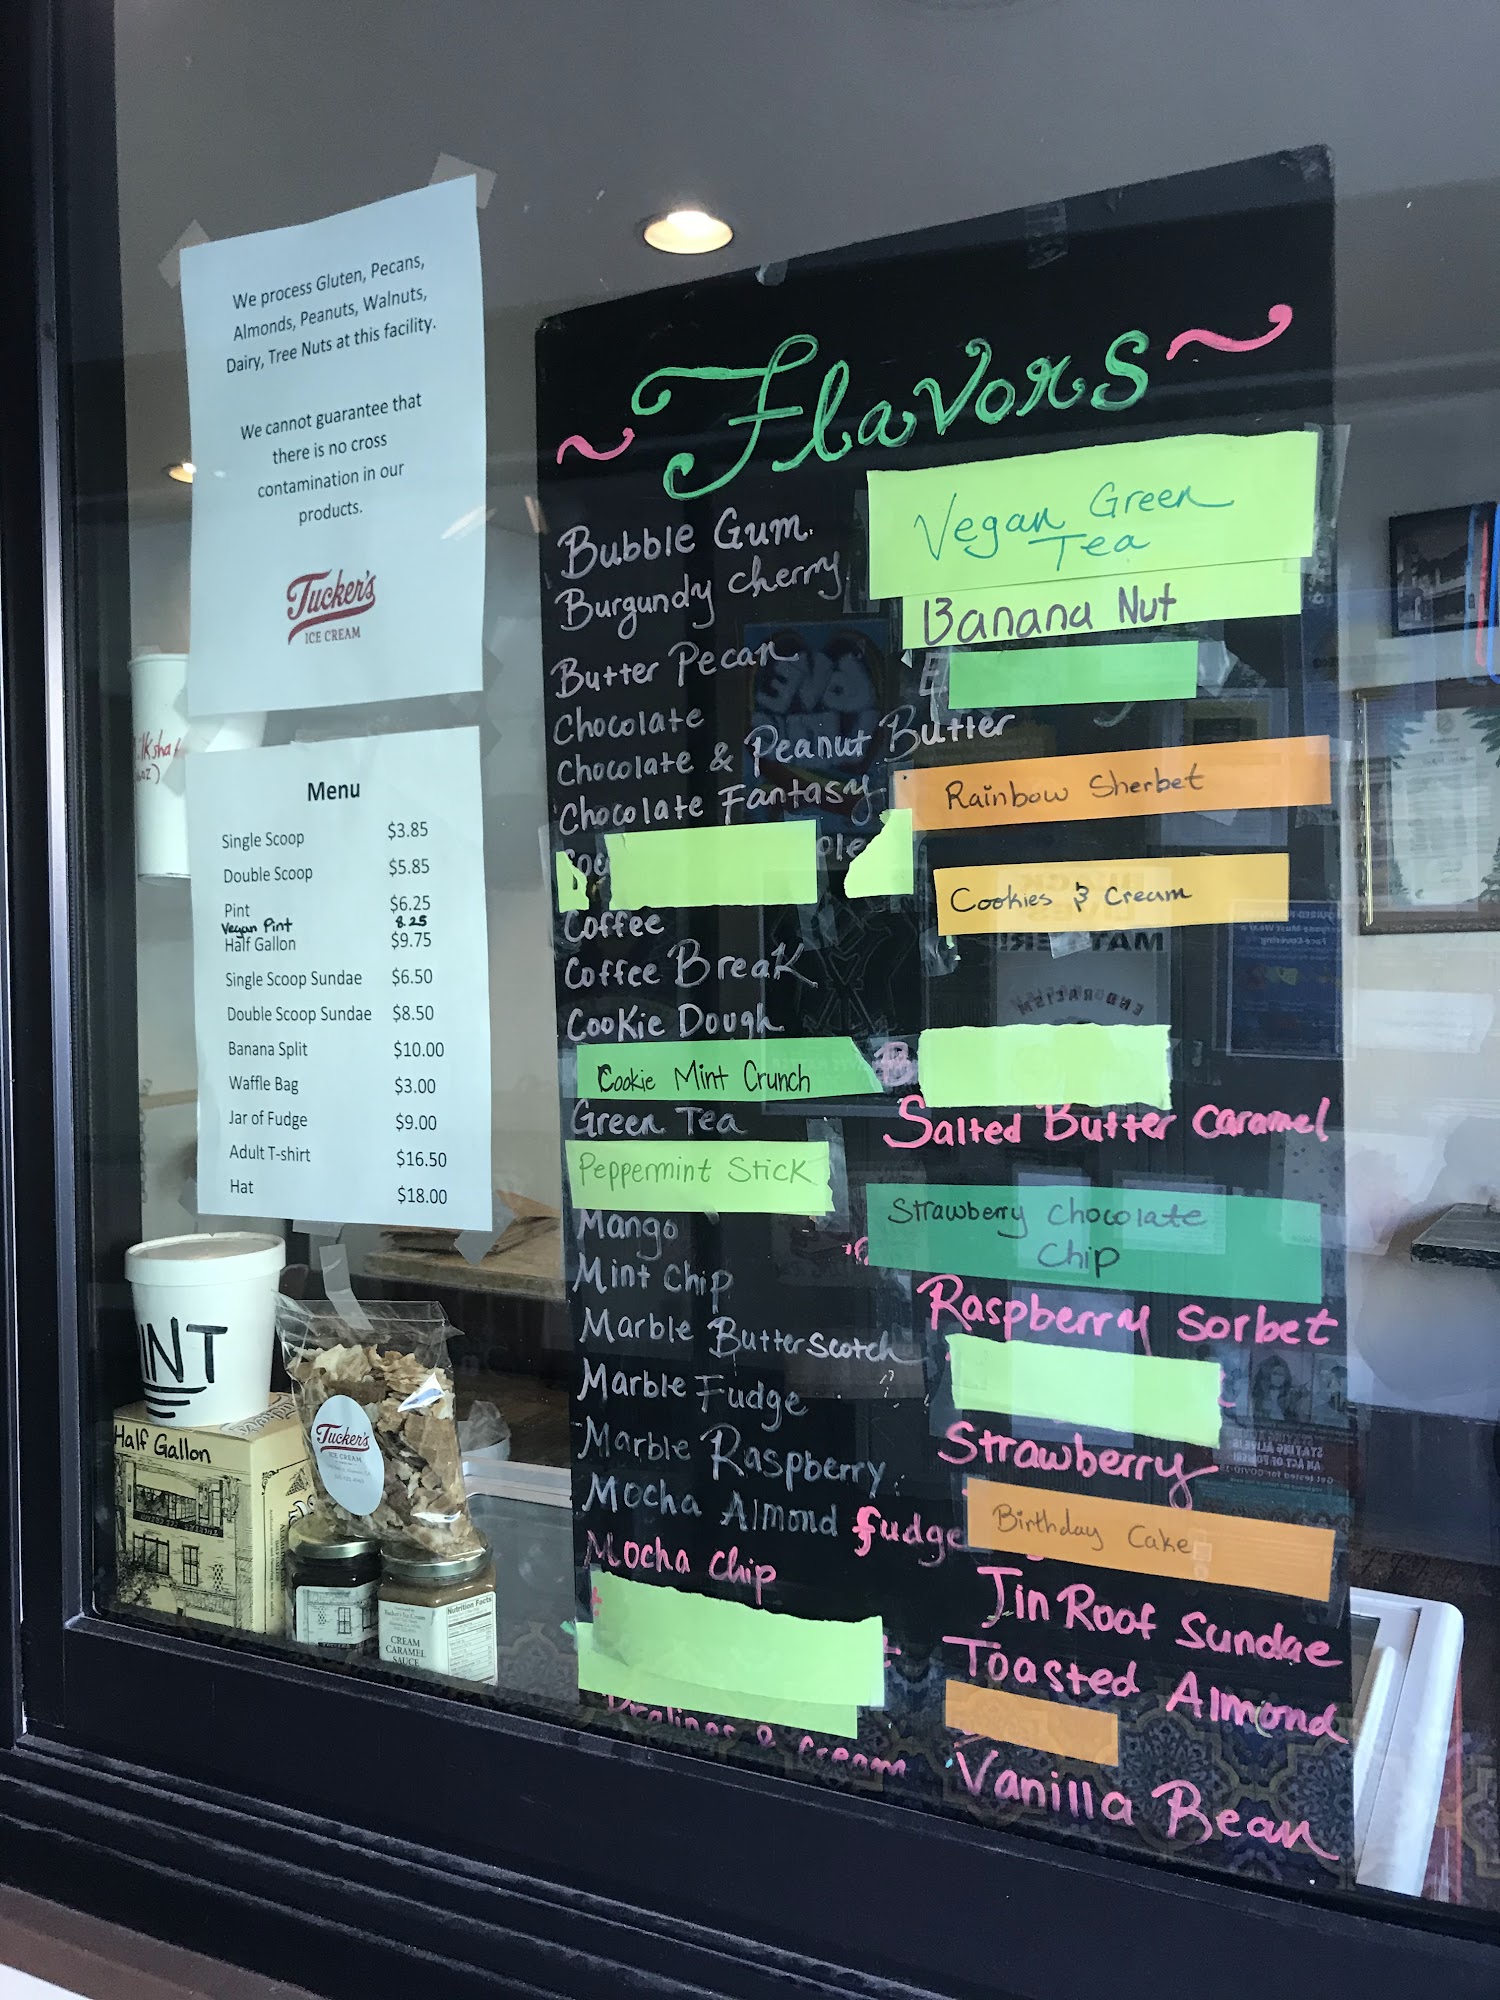 We process Gluten, Pecans,
Almonds, Peanuts, Walnuts,
Dairy, Tree Nuts at this facility.
We cannot guarantee that
there is no cross
contamination in our
products.
Tucker's
ICE CREAM
Menu
Single Scoop $3.85
Double Scoop $5.85
Pint $6.25
Vegan Pint 8.25
Half Gallon $9.75
Single Scoop Sundae $6.50
Double Scoop Sundae $8.50
Banana Split $10.00
Waffle Bag $3.00
Jar of Fudge $9.00
Adult T-shirt $16.50
Hat $18.00
Half Gallon
Tucker's
ICE CREAM
CREAM
CARAMEL
SAUCE
Nutrition Facts
~ Flavors ~
Bubble Gum
Burgundy Cherry
Butter Pecan
Chocolate
Chocolate & Peanut Butter
Chocolate Fantasy
Coffee
Coffee Break
Cookie Dough
Cookie Mint Crunch
Green Tea
Peppermint Stick
Mango
Mint Chip
Marble Butterscotch
Marble Fudge
Marble Raspberry
Mocha Almond Fudge
Mocha Chip
Pralines & Cream
Vegan Green
Tea
Banana Nut
Rainbow Sherbet
Cookies & Cream
Salted Butter Caramel
Strawberry Chocolate
Chip
Raspberry Sorbet
Strawberry
Birthday Cake
Tin Roof Sundae
Toasted Almond
Vanilla Bean